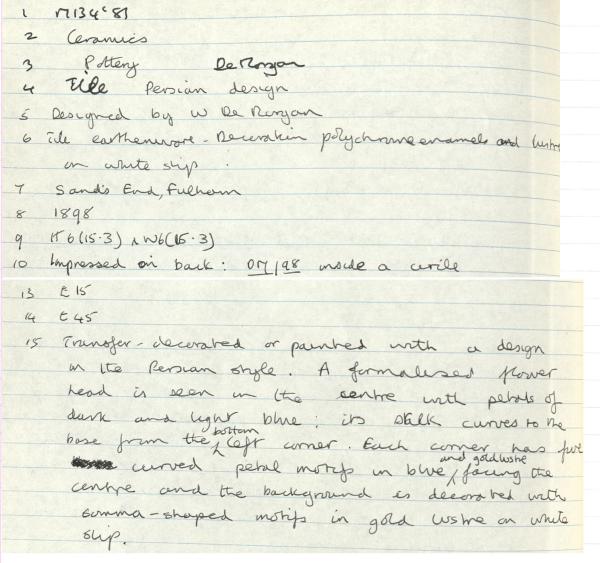 1 M134'81
2 Ceramics
3 Pottery De Morgan
4 Tile Persian design
5 Designed by W De Morgan
6 Tile earthenware - Decoration polychrome enamels and lustre
on white slip.
7 Sand's End, Fulham
8 1898
9 H 6 (15.3) x W6 (15.3)
10 Impressed on back: DM/98 inside a circle
13 £15
14 £45
15 Transfer-decorated or painted with a design
in the Persian style. A formalised flower
head is seen in the centre with petals of
dark and light blue; its stalk curves to the
base from the bottom left corner. Each corner has five
curved petal motifs in blue and gold lustre, facing the
centre and the background is decorated with
comma-shaped motifs in gold lustre on white
slip.